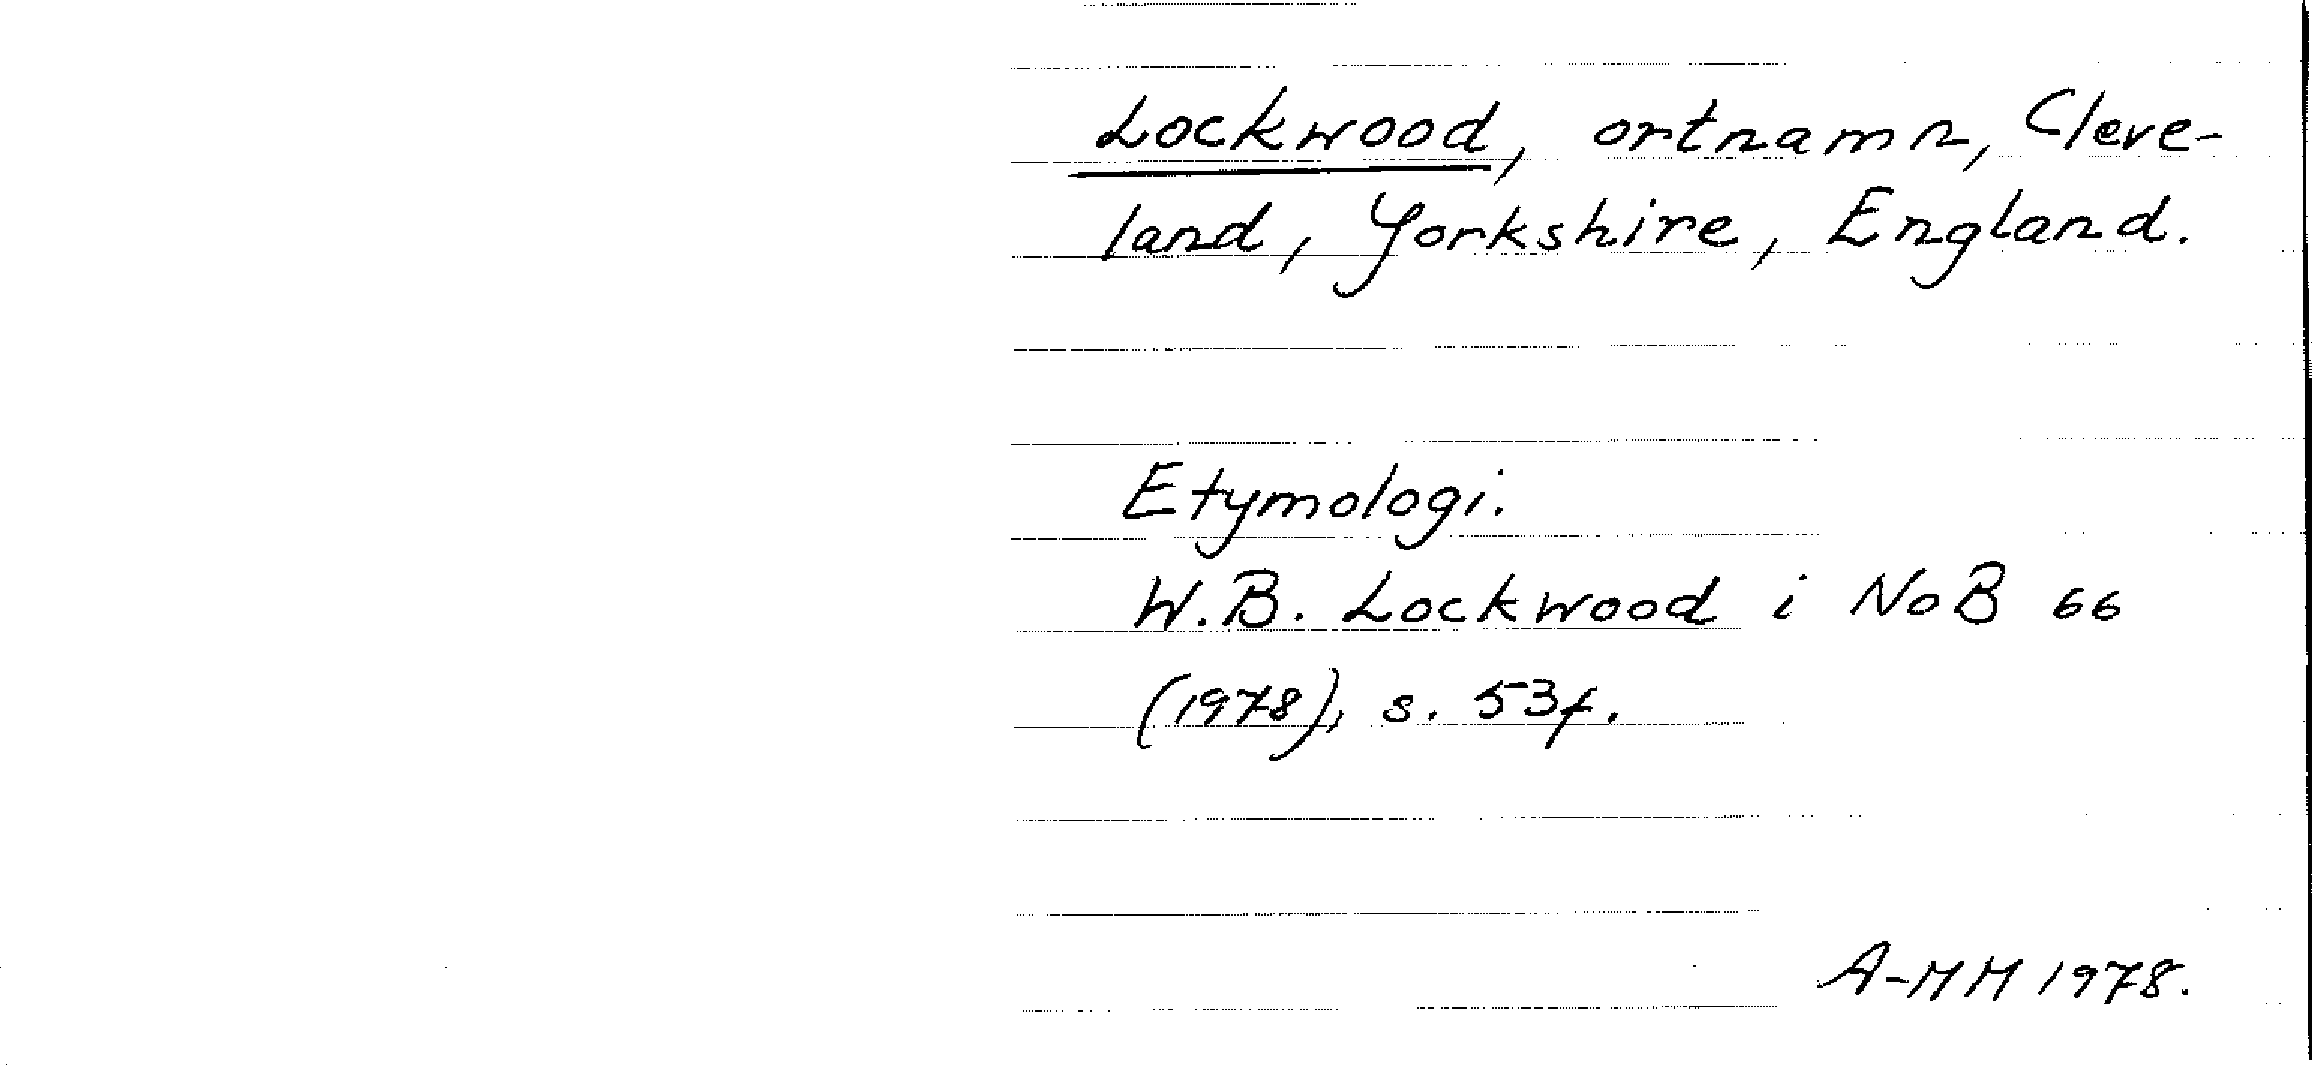 Lockwood, ortnamn, Cleve-
land, Yorkshire, England.
Etymologi.
W.B. Lockwood i NoB 66
(1978), s. 53f.
A-MM 1978.